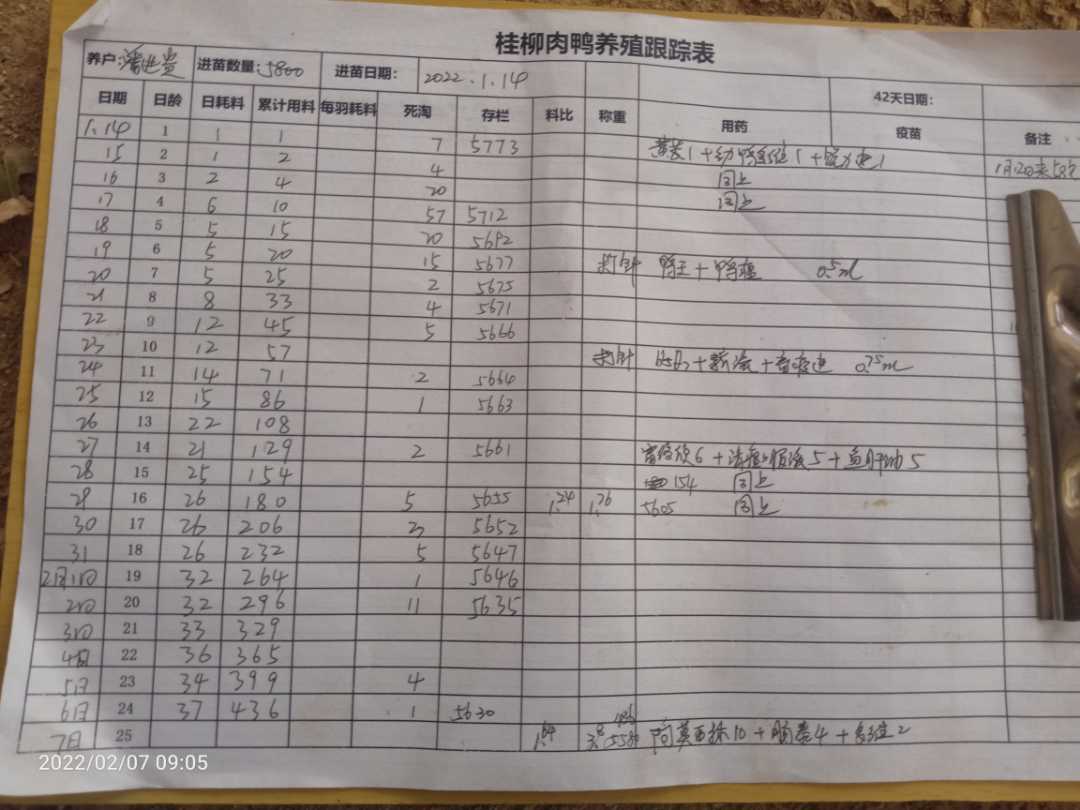 桂柳肉鸭养殖跟踪表
养户: 进苗数量:5800 进苗日期: 2022.1.14 42天日期:
日期 日龄 日耗料 累计用料 每羽耗料 死淘 存栏 料比 称重 用药 疫苗 备注
1.14 1 1 1 7 5773
15 2 1 2 4 同上
16 3 2 4 20 同上
17 4 6 10 57 5712
18 5 5 15 20 5692
19 6 5 20 15 5677 打针 鸭王+鸭瘟 0.5ml
20 7 5 25 2 5675
21 8 8 33 4 5671
22 9 12 45 5 5666
23 10 12 57 打针 0.75ml
24 11 14 71 2 5664
25 12 15 86 1 5663
26 13 22 108
27 14 21 129 2 5661
28 15 25 154 154 同上
28 16 26 180 5 5655 1.24 1.26 5605 同上
30 17 26 206 3 5652
31 18 26 232 5 5647
2月1日 19 32 264 1 5646
2日 20 32 296 11 5635
3日 21 33 329
4日 22 36 365
5日 23 34 399 4
6日 24 37 436 1 5630
7日 25 1.64 阿莫西林10+肠毒4+多维2
2022/02/07 09:05